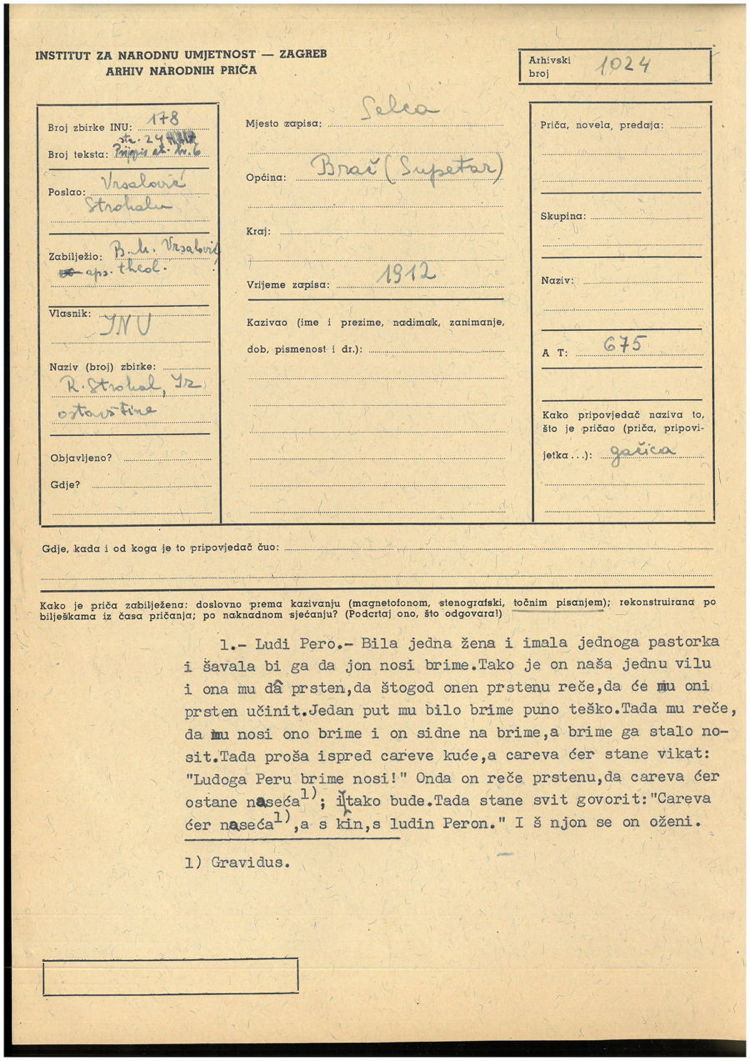 INSTITUT ZA NARODNU UMJETNOST — ZAGREB
ARHIV NARODNIH PRIČA
Arhivski broj 1024
Broj zbirke INU: 178
str. 24
Broj teksta: Prijepis et. br. 6
Poslao: Vrsalović
Strohalu
Zabilježio: B. M. Vrsalović
aps. theol.
Vlasnik:
INU
Naziv (broj) zbirke:
R. Strohal, Iz
ostavštine
Objavljeno?
Gdje?
Mjesto zapisa: Selca
Općina: Brač (Supetar)
Kraj:
Vrijeme zapisa: 1912
Kazivao (ime i prezime, nadimak, zanimanje,
dob, pismenost i dr.):
Priča, novela, predaja:
Skupina:
Naziv:
A T: 675
Kako pripovjedač naziva to,
što je pričao (priča, pripovi-
jetka...): gačica
Gdje, kada i od koga je to pripovjedač čuo:
Kako je priča zabilježena: doslovno prema kazivanju (magnetofonom, stenografski, točnim pisanjem); rekonstruirana po
bilješkama iz časa pričanja; po naknadnom sjećanju? (Podcrtaj ono, što odgovara!)
1.- Ludi Pero.- Bila jedna žena i imala jednoga pastorka
i šavala bi ga da jon nosi brime.Tako je on naša jednu vilu
i ona mu dâ prsten,da štogod onen prstenu reče,da će mu oni
prsten učinit.Jedan put mu bilo brime puno teško.Tada mu reče,
da mu nosi ono brime i on sidne na brime,a brime ga stalo no-
sit.Tada proša ispred careve kuće,a careva ćer stane vikat:
"Ludoga Peru brime nosi!" Onda on reče prstenu,da careva ćer
ostane naseća1); i tako bude.Tada stane svit govorit:"Careva
ćer naseća1),a s kîn,s ludin Peron." I š njon se on oženi.
1) Gravidus.